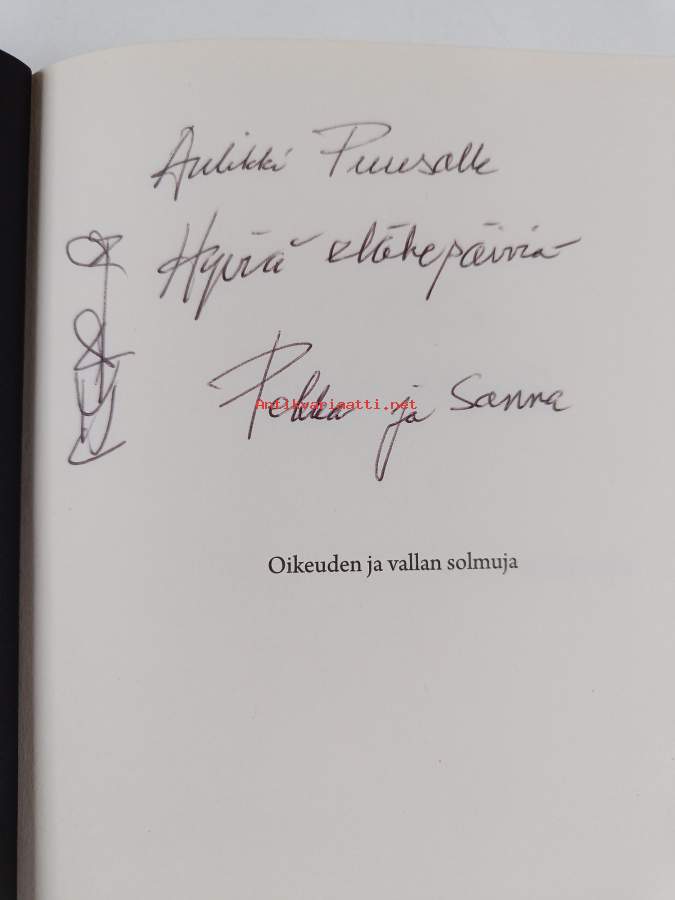 Aulikki Puusalle
Hyviä eläkepäiviä
Pekka ja Sanna
Antikvariaatti.net
Oikeuden ja vallan solmuja